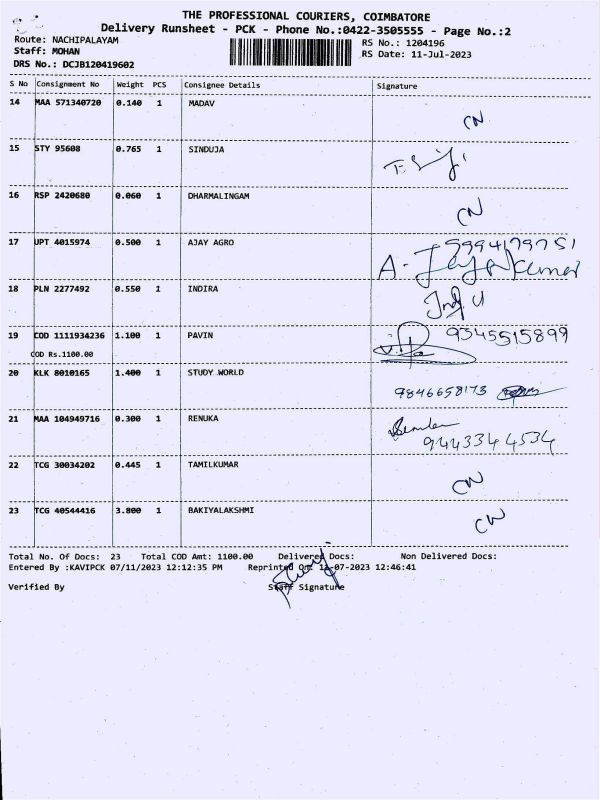 THE PROFESSIONAL COURIERS, COIMBATORE
Delivery Runsheet - PCK - Phone No.:0422-3505555 - Page No.:2
Route: NACHIPALAYAM
Staff: MOHAN
DRS No.: DCJB120419602
RS No.: 1204196
RS Date: 11-Jul-2023
S No Consignment No Weight PCS Consignee Details Signature
14 MAA 571340720 0.140 1 MADAV CN
15 STY 95608 0.765 1 SINDUJA
16 RSP 2420680 0.060 1 DHARMALINGAM CN
17 UPT 4015974 0.500 1 AJAY AGRO 5994179751
A. Jayakumar
18 PLN 2277492 0.550 1 INDIRA
19 COD 1111934236 1.100 1 PAVIN 9345515899
COD Rs.1100.00
20 KLK 8010165 1.400 1 STUDY WORLD 9846658173
21 MAA 104949716 0.300 1 RENUKA
9443344534
22 TCG 30034202 0.445 1 TAMILKUMAR CN
23 TCG 40544416 3.800 1 BAKIYALAKSHMI CN
Total No. Of Docs: 23 Total COD Amt: 1100.00 Delivered Docs: Non Delivered Docs:
Entered By :KAVIPCK 07/11/2023 12:12:35 PM Reprinted On: 12-07-2023 12:46:41
Verified By Staff Signature